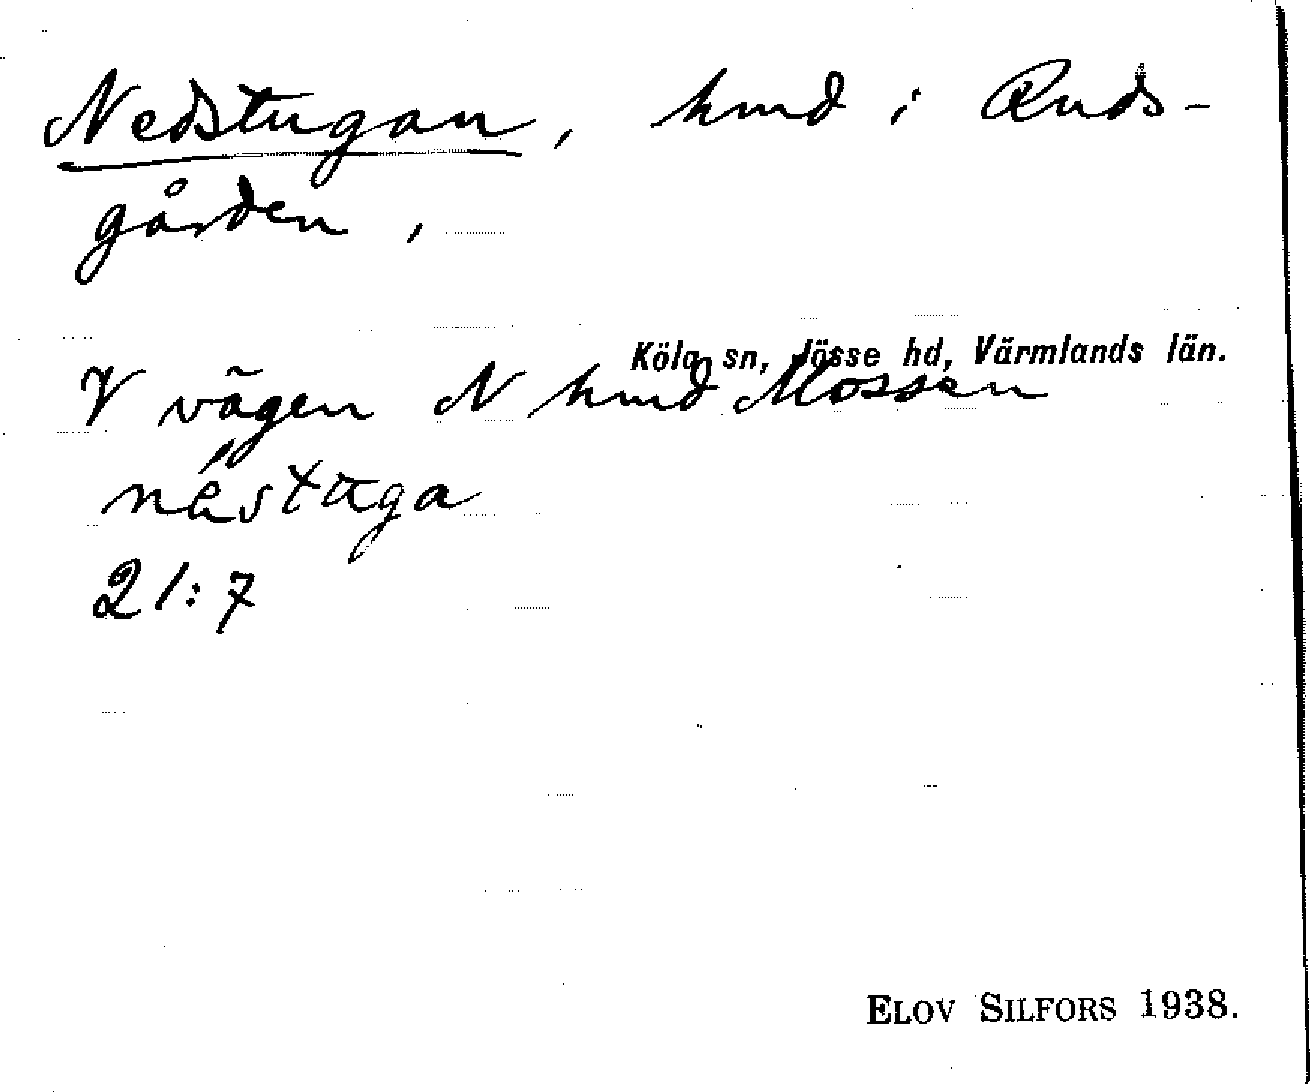 Nedstugan, hmd i Ruds-
gården,
Köla sn, Jösse hd, Värmlands län.
V vägen N hmd Mossen
nèstuga
21:7
ELOV SILFORS 1938.